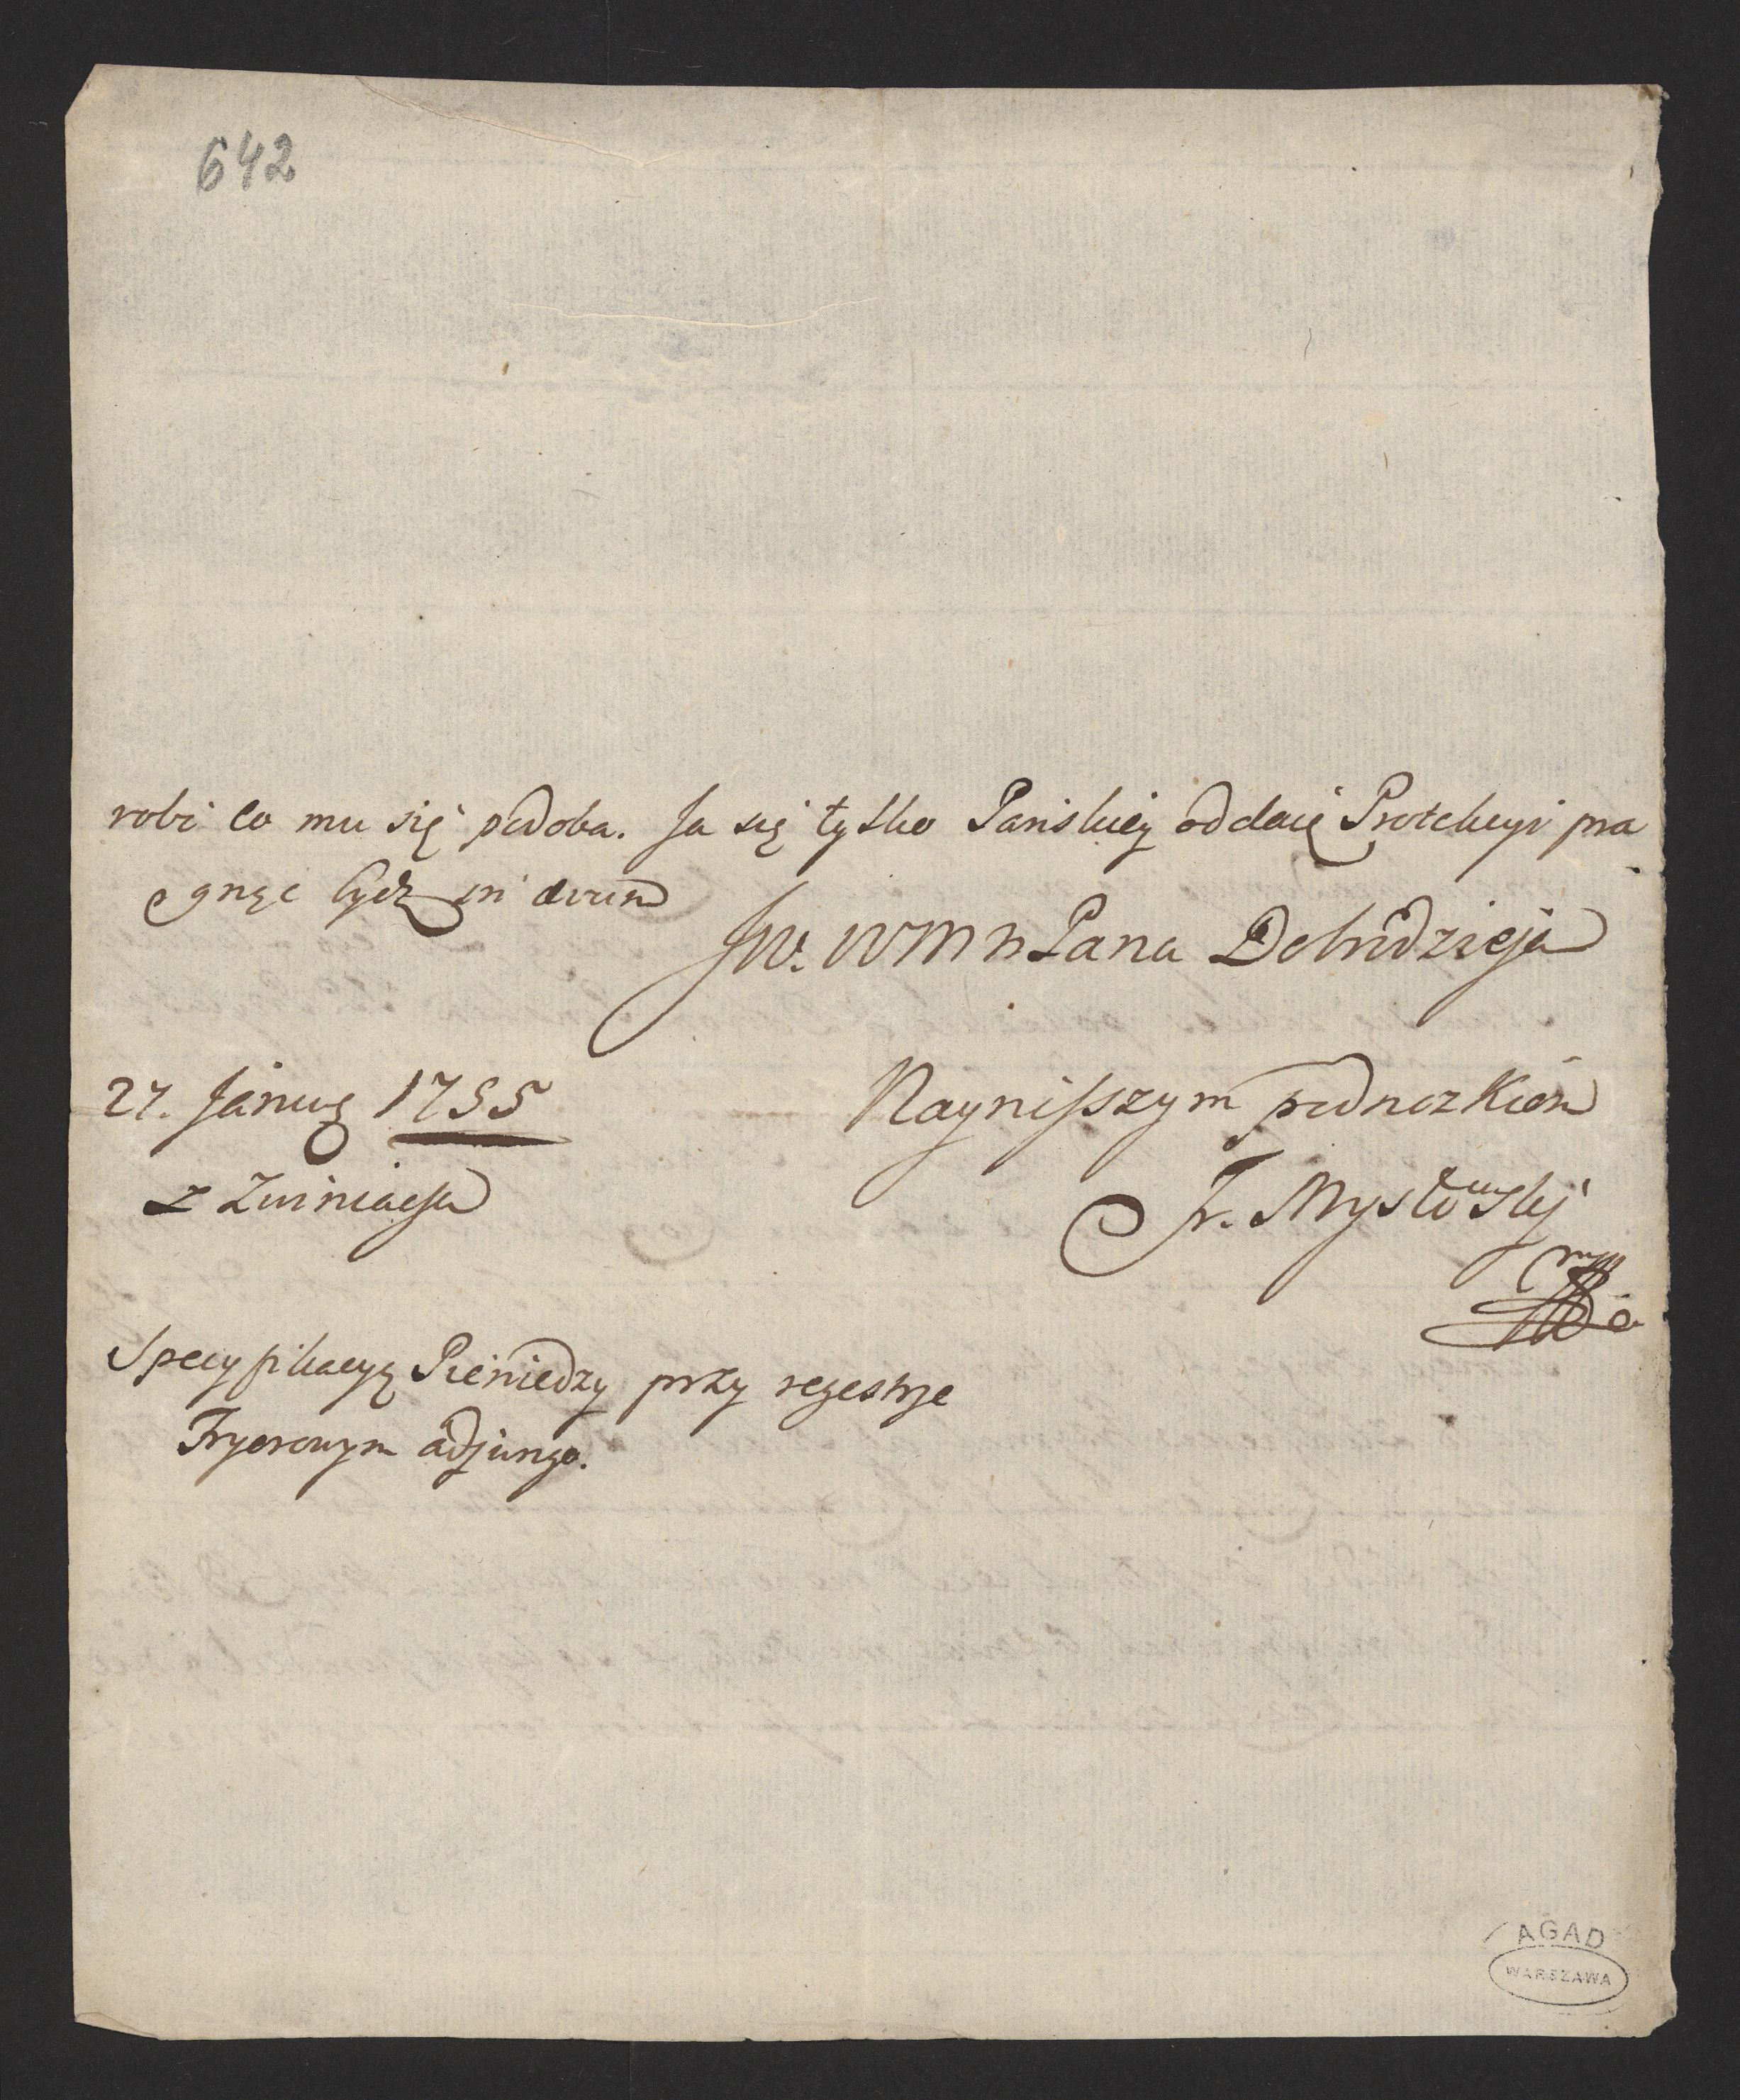 642
robi co mu się podoba. Ja się tylko Pańskiey oddaię Protekcyi pra
gnąc bydz in ævum
JW. WMM Pana Dobrodzieja
27. Januarij 1755
z Zwiniacza
Nayniższym podnozkiem
Fr. Mysłowskj
Specyfikacyą Pieniedzy przy regestrze
Fryorowym adjungo.
AGAD
WARSZAWA